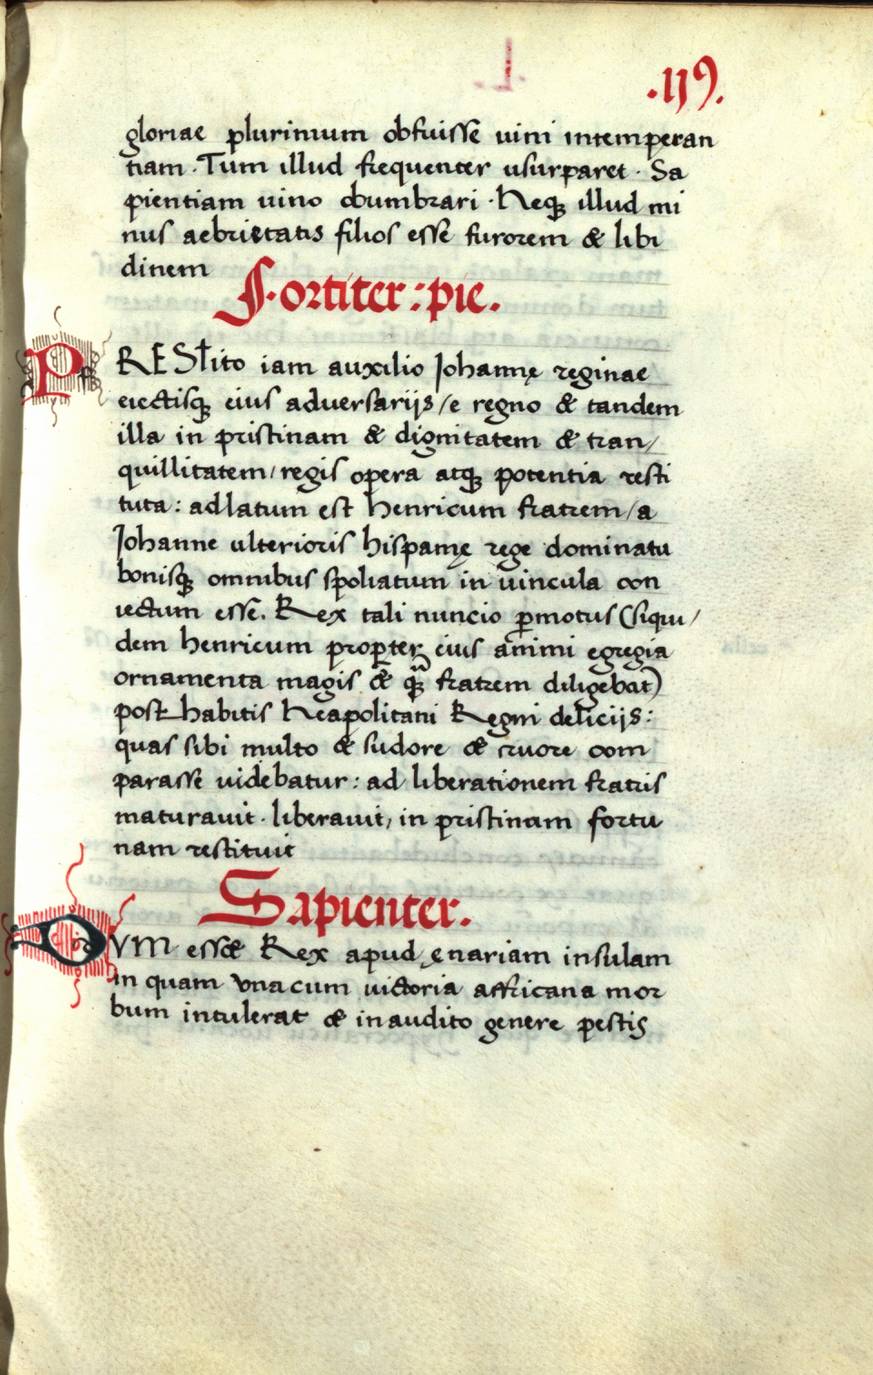 .119.
gloriae plurimum obfuisse uini intemperan
tiam · Tum illud frequenter usurparet · Sa
pientiam uino obumbrari · Neqꝫ illud mi
nus aebrietatis filios esse furorem & libi
dinem
Fortiter : pie.
PREStito iam auxilio Johannę reginae
eiectisqꝫ eius adversarijs / e regno & tandem
illa in pristinam & dignitatem & tran/
quillitatem / regis opera atqꝫ potentia resti
tuta : adlatum est henricum fratrem / a
Johanne ulterioris hispanię rege dominatu
bonisqꝫ omnibus spoliatum in uincula con
iectum esse. Rex tali nuncio ꝑmotus (siqui/
dem henricum propter eius animi egregia
ornamenta magis & qꝫ̃ fratrem diligebat)
post habitis Neapolitani Regni delicijs :
quas sibi multo & sudore & cruore com
parasse uidebatur : ad liberationem fratris
maturauit · liberauit, in pristinam fortu
nam restituit
Sapienter.
DVM essæ Rex apud ęnariam insulam
in quam vna cum uictoria affricana mor
bum intulerat & inaudito genere pestis